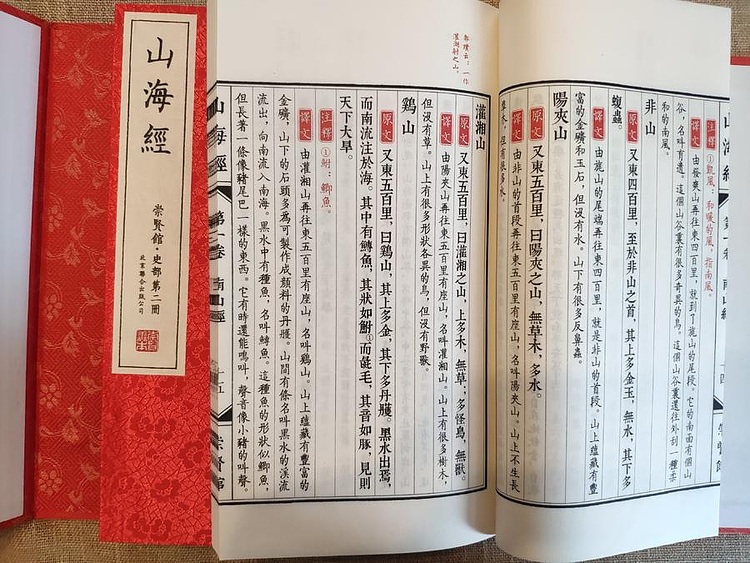 山海經
崇賢館·史部第二冊
北京聯合出版公司
注釋 ①凱風：和暖的風，指南風。
譯文 由發爽山再往東四百里，就到了旄山的尾段。它的南面有個山
谷，名叫育遺。這個山谷裏有很多奇異的鳥。這個山谷裏還往外刮一種柔
和的南風。
非山
原文 又東四百里，至於非山之首，其上多金玉，無水，其下多
蝮蟲。
譯文 由旄山的尾端再往東四百里，就是非山的首段。山上蘊藏有豐
富的金礦和玉石，但沒有水。山下有很多反鼻蟲。
陽夾山
原文 又東五百里，曰陽夾之山，無草木，多水。
譯文 由非山的首段再往東五百里有座山，名叫陽夾山。山上不生長
草木，但有很多水。
郭璞云：一作
灌湖射之山。
灌湘山
原文 又東五百里，曰灌湘之山，上多木，無草；多怪鳥，無獸。
譯文 由陽夾山再往東五百里有座山，名叫灌湘山。山上有很多樹木，
但沒有草。山上有很多形狀各異的鳥，但沒有野獸。
鷄山
原文 又東五百里，曰鷄山，其上多金，其下多丹雘。黑水出焉，
而南流注於海。其中有鱄魚，其狀如鮒①而彘毛，其音如豚，見則
天下大旱。
注釋 ①鮒：鯽魚。
譯文 由灌湘山再往東五百里有座山，名叫鷄山。山上蘊藏有豐富的
金礦，山下的石頭多為可製作成顏料的丹雘。山間有條名叫黑水的溪流
流出，向南流入南海。黑水中有種魚，名叫鱄魚，這種魚的形狀似鯽魚，
但長著一條像豬尾巴一樣的東西。它有時還能鳴叫，聲音像小豬的叫聲。
山海經 第一卷 南山經 十五 崇賢館